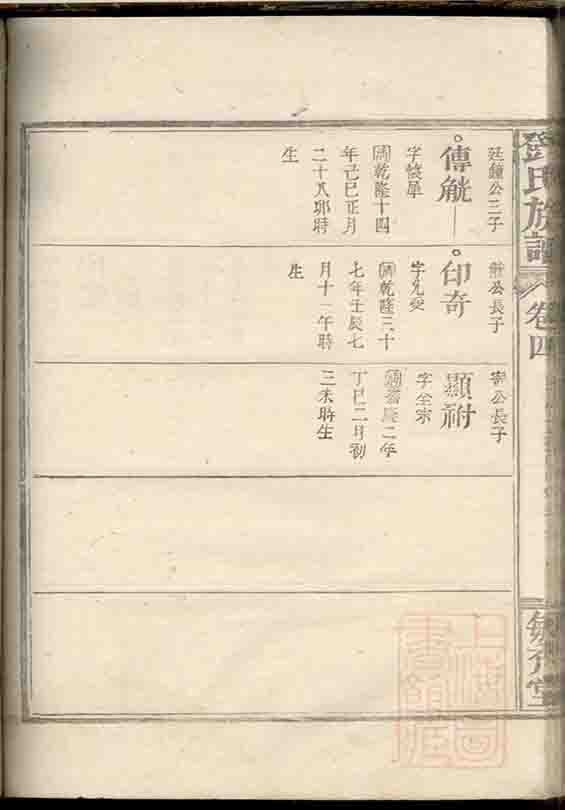 鄧氏族譜
卷四
廷鐘公三子
傳觥
字愧犀
清乾隆十四
年己巳正月
二十八卯時
生
觥公長子
印奇
字允燮
清乾隆三十
七年壬辰七
月十一午時
生
寄公長子
顯祔
字全宗
清嘉慶二年
丁巳二月初
三未時生
上海圖書館藏